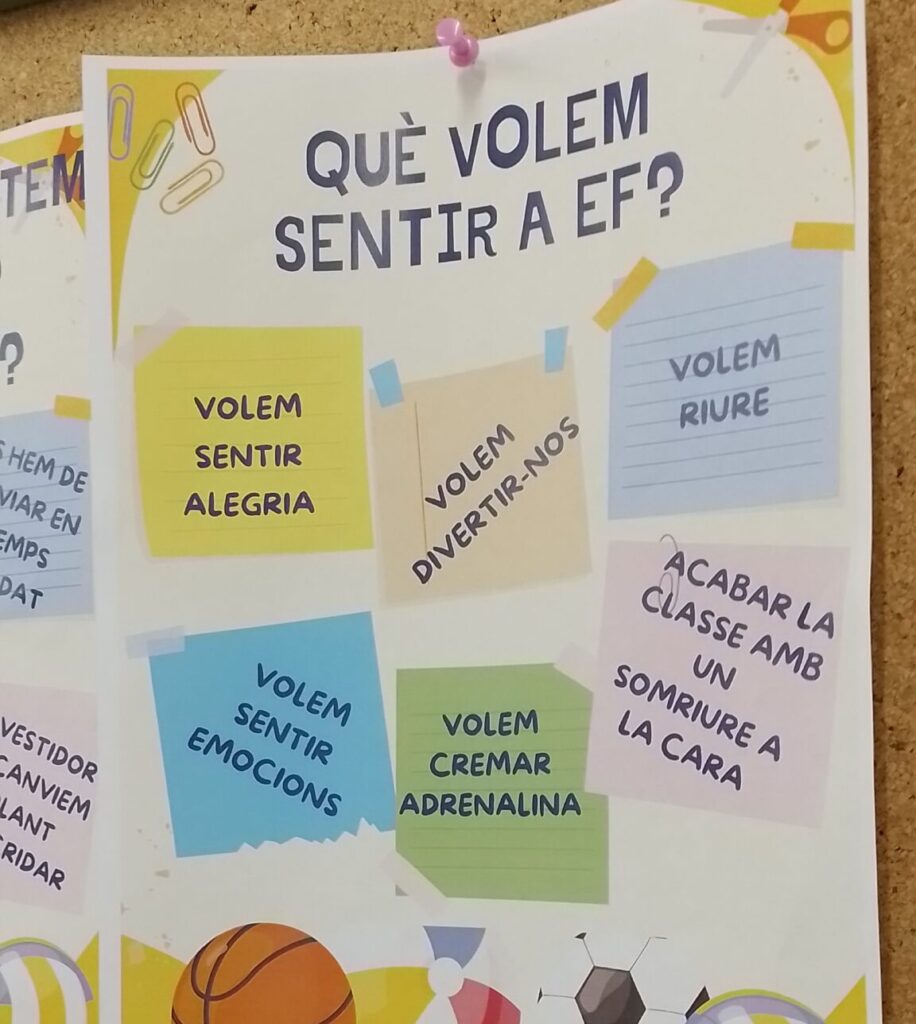 QUÈ VOLEM
SENTIR A EF?
VOLEM
SENTIR
ALEGRIA
VOLEM
DIVERTIR-NOS
VOLEM
RIURE
VOLEM
SENTIR
EMOCIONS
VOLEM
CREMAR
ADRENALINA
ACABAR LA
CLASSE AMB
UN
SOMRIURE A
LA CARA
?
HEM DE
EN
VESTIDOR
CANVIEM